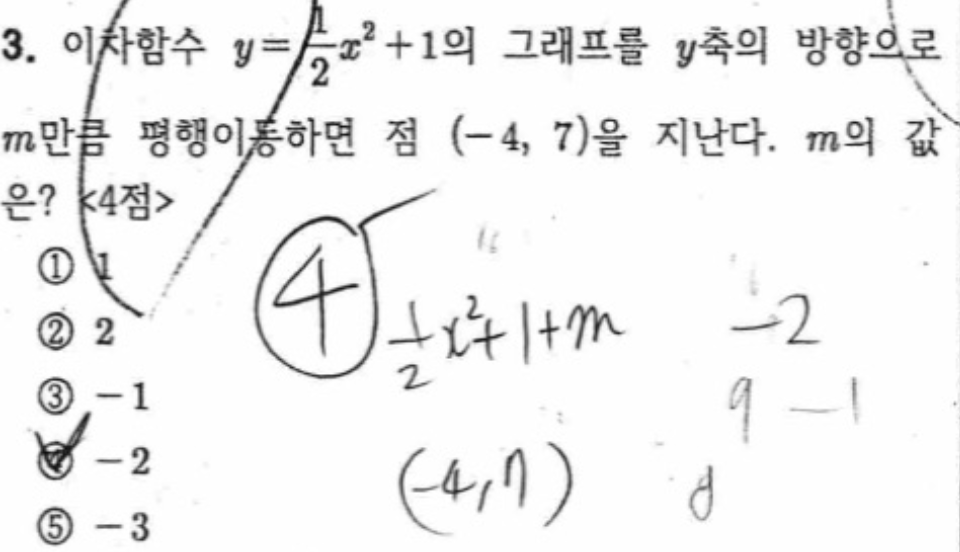 3. 이차함수 y=\frac{1}{2}x²+1의 그래프를 y축의 방향으로
m만큼 평행이동하면 점 (-4, 7)을 지난다. m의 값
은? <4점>
① 1
② 2
③ -1
④ -2
⑤ -3
4
\frac{1}{2}x²+1+m
-2
9 -1
(-4, 7)